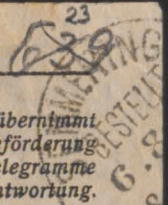 23
639
übernimmt
förderung
elegramme
ntwortung.
BESTELLT
6. 8